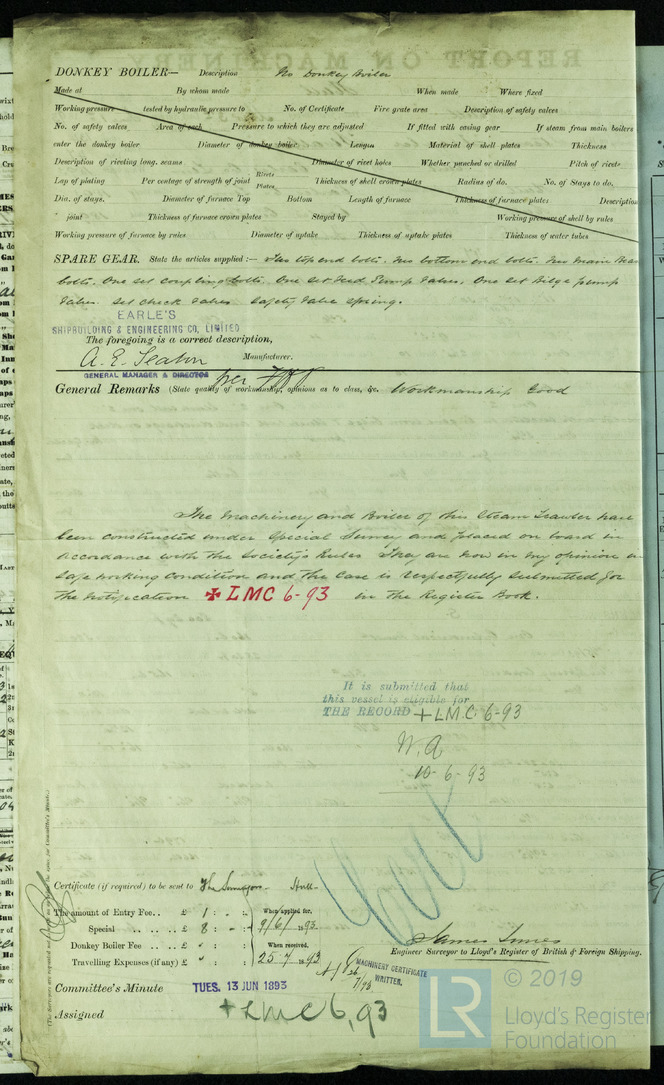 DONKEY BOILER— Description No Donkey Boiler
Made at By whom made When made Where fixed
Working pressure tested by hydraulic pressure to No. of Certificate Fire grate area Description of safety valves
No. of safety valves Area of each Pressure to which they are adjusted If fitted with easing gear If steam from main boilers
enter the donkey boiler Diameter of donkey boiler Length Material of shell plates Thickness
Description of riveting long. seams Diameter of rivet holes Whether punched or drilled Pitch of rivets
Lap of plating Per centage of strength of joint Rivets Plates Thickness of shell crown plates Radius of do. No. of Stays to do.
Dia. of stays. Diameter of furnace Top Bottom Length of furnace Thickness of furnace plates Description
joint Thickness of furnace crown plates Stayed by Working pressure of shell by rules
Working pressure of furnace by rules Diameter of uptake Thickness of uptake plates Thickness of water tubes
SPARE GEAR. State the articles supplied:— Two top end bolts. Two bottom end bolts. Two main
bolts. One set coupling bolts. One set Feed Pump valves. One set Bilge pump
valves. set check valves safety valve spring.
EARLE'S
SHIPBUILDING & ENGINEERING CO, LIMITED
The foregoing is a correct description,
A. E. Seaton Manufacturer.
GENERAL MANAGER & DIRECTOR
per
General Remarks (State quality of workmanship, opinions as to class, &c. Workmanship Good
The Machinery and Boiler of this Steam Trawler have
been constructed under Special Survey and placed on board in
accordance with the Society's Rules They are now in my opinion in
safe working condition and the case is respectfully submitted for
the notification ✠ LMC 6-93 in the Register Book.
It is submitted that
this vessel is eligible for
THE RECORD + LMC. 6-93
10-6-93
Certificate (if required) to be sent to The Surveyors Hull
The amount of Entry Fee.. £ 1 : . : When applied for,
Special .. .. .. .. £ 8 : - : 9/6/1893
Donkey Boiler Fee .. .. £ " : : When received,
Travelling Expenses (if any) £ " : : 25-7-1893
James Innes
Engineer Surveyor to Lloyd's Register of British & Foreign Shipping.
MACHINERY CERTIFICATE
WRITTEN.
Committee's Minute TUES. 13 JUN 1893
Assigned + LMC 6,93
LR
© 2019
Lloyd's Register
Foundation